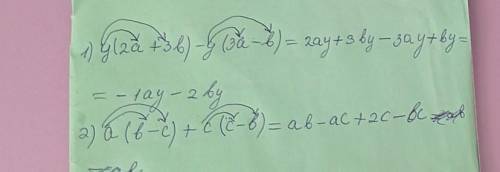 1) y(2a+3b)-y(3a-b)=2ay+3by-3ay+by=
=-1ay-2by
2) a(b-c)+c(c-b)=ab-ac+2c-bc